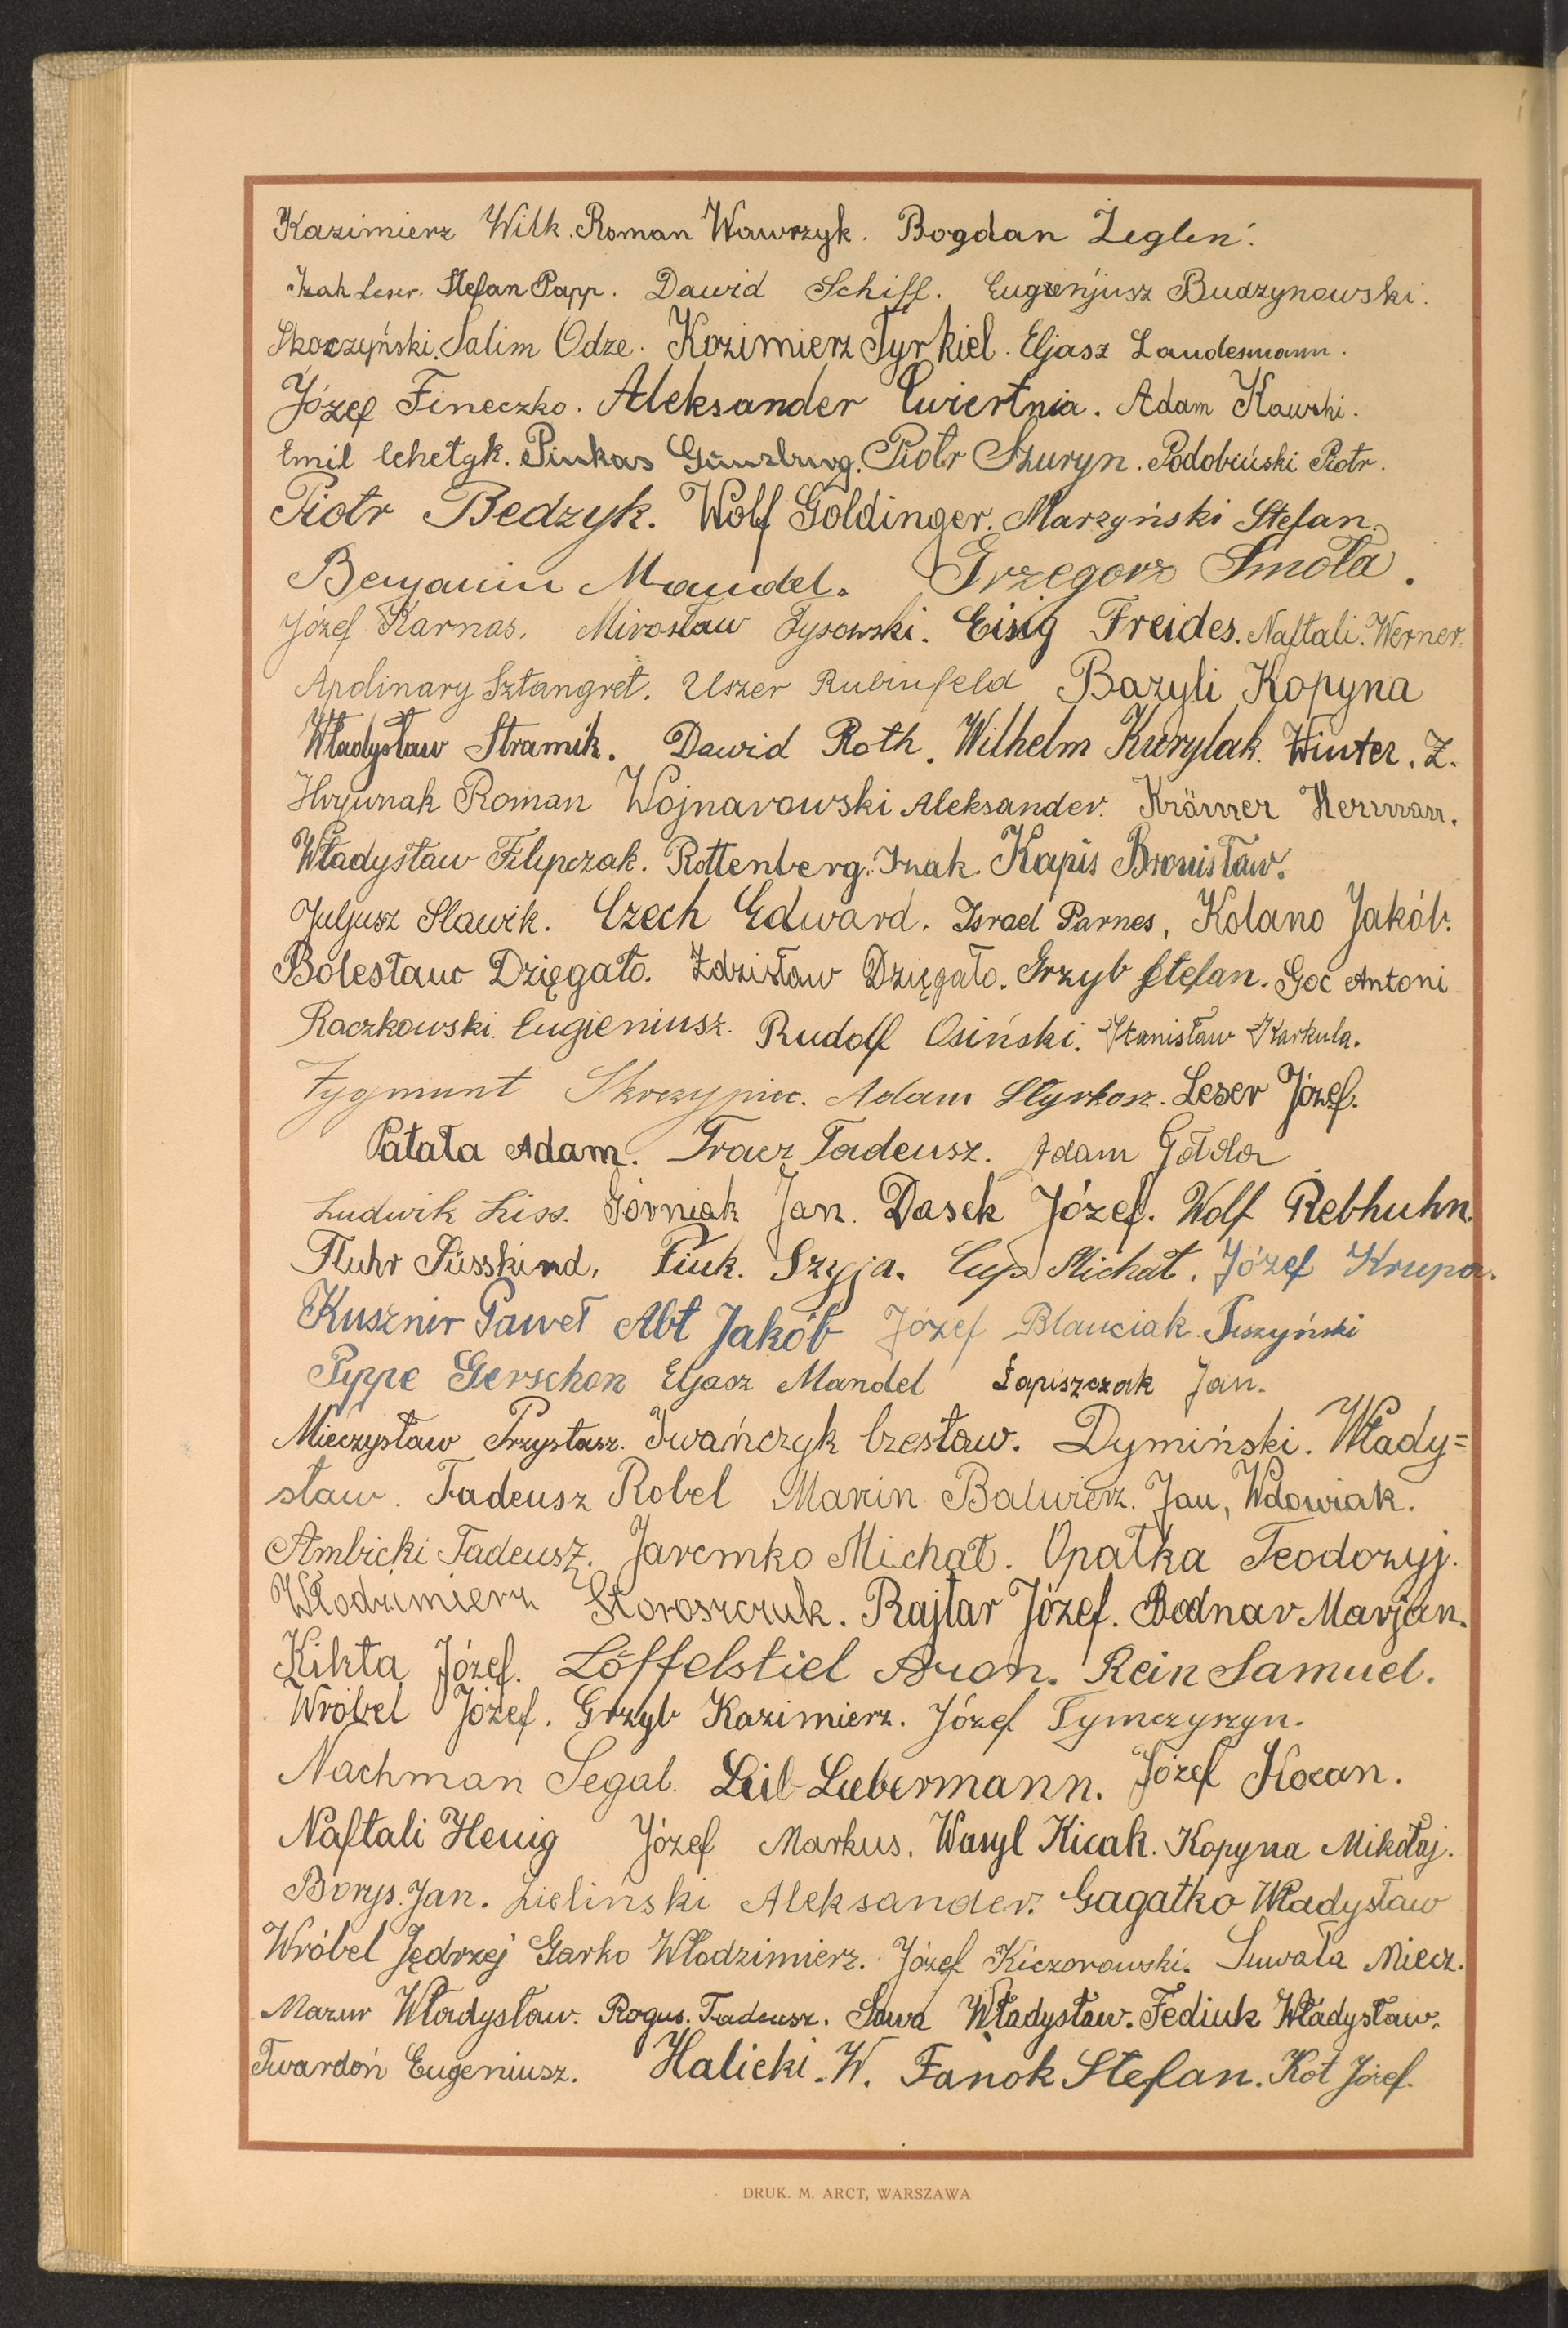 Kazimierz Wilk. Roman Wawrzyk. Bogdan Żegleń.
Izak Leser. Stefan Papp. Dawid Schiff. Eugenjusz Budzynowski.
Skoczyński. Salim Odze. Kazimierz Tyrkiel. Eljasz Landesmann.
Józef Fineczko. Aleksander Ćwiertnia. Adam Kawski.
Emil Chetyk. Pinkas Günzburg. Piotr Szuryn. Podobiński Piotr.
Piotr Bedzyk. Wolf Goldinger. Marzyński Stefan.
Benjamin Mandel. Grzegorz Smoła.
Józef Karnas. Mirosław Tysowski. Eisig Freides. Naftali. Werner.
Apolinary Sztangret. Uszer Rubinfeld Bazyli Kopyna
Władysław Stramik. Dawid Roth. Wilhelm Kurylak. Winter. Z.
Hrywnak Roman Wojnarowski Aleksander. Krämer Herman.
Władysław Filipczak. Rottenberg. Izak. Kapis Bronisław.
Juljusz Sławik. Czech Edward. Israel Parnes, Kolano Jakób.
Bolesław Dzięgało. Zdzisław Dzięgało. Grzyb Stefan. Goc Antoni
Raczkowski. Eugieniusz. Rudolf Osiński. Stanisław Karkula.
Zygmunt Skrzypiec. Adam Styrkosz. Leser Józef.
Patała Adam. Tracz Tadeusz. Adam Gołda
Ludwik Liss. Górniak Jan. Dasek Józef. Wolf Rebhuhn.
Fluhr Süsskind. Fink. Szyja. Cup Michał. Józef Krupa.
Kusznir Paweł Abt Jakób Józef Blauciak. Tuszyński
Pyppe Gerschon Eljasz Mandel Łapiszczak Jan.
Mieczysław Przystasz. Iwańczyk Czesław. Dymiński. Włady=
sław. Tadeusz Robel Marcin Balwierz. Jan, Wdowiak.
Ambicki Tadeusz. Jaremko Michał. Opałka Teodozyj.
Włodzimierz Storoszczuk. Rajtar Józef. Bodnar Marjan.
Kikta Józef. Löffelstiel Aron. Rein Samuel.
Wróbel Józef. Grzyb Kazimierz. Józef Tymczyszyn.
Nachman Segal. Leib Liebermann. Józef Kocan.
Naftali Henig Józef Markus. Wasyl Kicak. Kopyna Mikołaj.
Borys. Jan. Zieliński Aleksander. Gagatko Władysław
Wróbel Jędrzej Garko Włodzimierz. Józef Kiczorowski. Suwała Miecz.
Mazur Władysław. Rogus. Tadeusz. Sawa Władysław. Fediuk Władysław.
Twardoń Eugeniusz. Halicki. W. Fanok Stefan. Kot Józef.
DRUK. M. ARCT, WARSZAWA